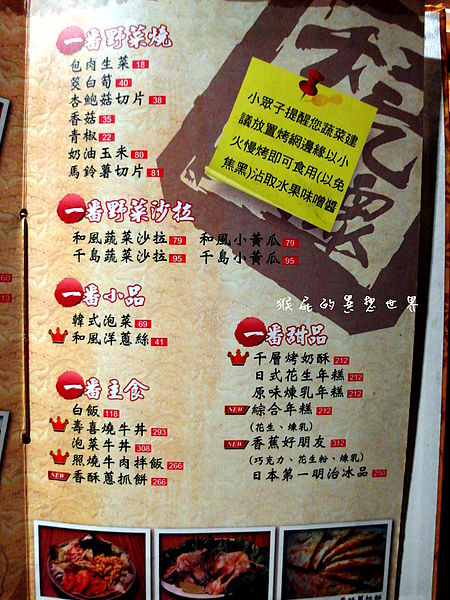 一番野菜燒
包肉生菜 18
筊白筍 40
杏鮑菇切片 38
香菇 35
青椒 22
奶油玉米 80
馬鈴薯切片 81
小眾子提醒您蔬菜建
議放置烤網邊緣以小
火慢烤即可食用(以免
焦黑)沾取水果味噌醬
一番野菜沙拉
和風蔬菜沙拉 79 和風小黃瓜 79
千島蔬菜沙拉 95 千島小黃瓜 95
一番小品
韓式泡菜 69
和風洋蔥絲 41
猴屁的異想世界
一番主食
白飯 118
壽喜燒牛丼 293
泡菜牛丼 308
照燒牛肉拌飯 266
NEW 香酥蔥抓餅 266
一番甜品
千層烤奶酥 212
日式花生年糕 212
原味煉乳年糕 212
NEW 綜合年糕 212
(花生、煉乳)
NEW 香蕉好朋友 312
(巧克力、花生粉、煉乳)
日本第一明治冰品 250